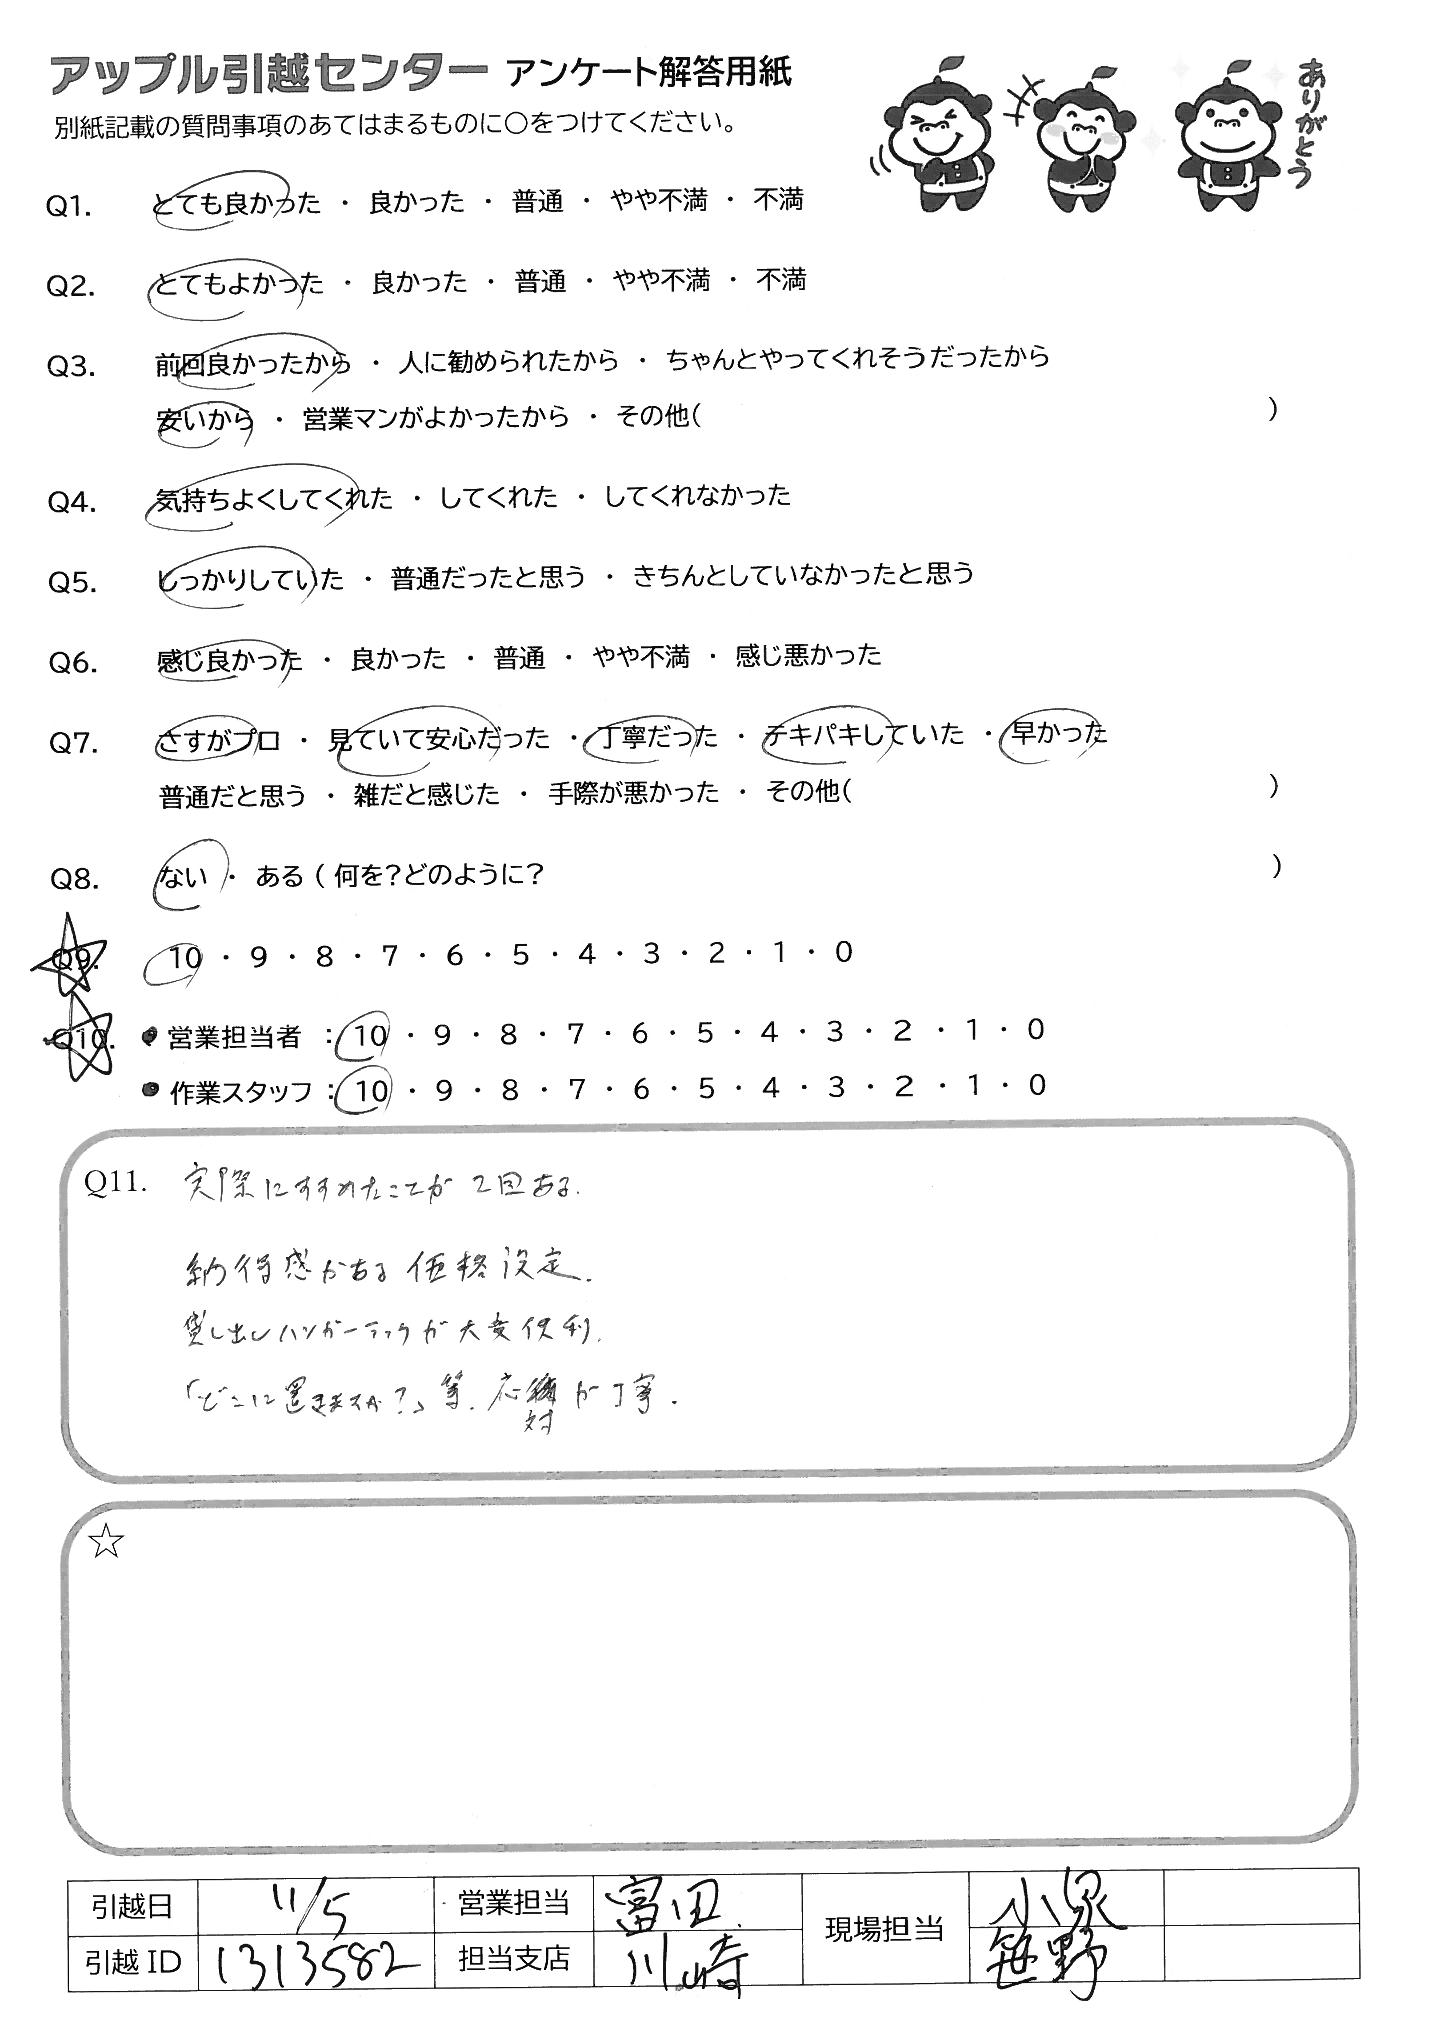 アップル引越センター アンケート解答用紙
別紙記載の質問事項のあてはまるものに○をつけてください。
ありがとう
Q1. とても良かった ・ 良かった ・ 普通 ・ やや不満 ・ 不満
Q2. とてもよかった ・ 良かった ・ 普通 ・ やや不満 ・ 不満
Q3. 前回良かったから ・ 人に勧められたから ・ ちゃんとやってくれそうだったから
安いから ・ 営業マンがよかったから ・ その他( )
Q4. 気持ちよくしてくれた ・ してくれた ・ してくれなかった
Q5. しっかりしていた ・ 普通だったと思う ・ きちんとしていなかったと思う
Q6. 感じ良かった ・ 良かった ・ 普通 ・ やや不満 ・ 感じ悪かった
Q7. さすがプロ ・ 見ていて安心だった ・ 丁寧だった ・ テキパキしていた ・ 早かった
普通だと思う ・ 雑だと感じた ・ 手際が悪かった ・ その他( )
Q8. ない ・ ある ( 何を?どのように? )
Q9. 10 ・ 9 ・ 8 ・ 7 ・ 6 ・ 5 ・ 4 ・ 3 ・ 2 ・ 1 ・ 0
Q10. ● 営業担当者 : 10 ・ 9 ・ 8 ・ 7 ・ 6 ・ 5 ・ 4 ・ 3 ・ 2 ・ 1 ・ 0
● 作業スタッフ : 10 ・ 9 ・ 8 ・ 7 ・ 6 ・ 5 ・ 4 ・ 3 ・ 2 ・ 1 ・ 0
Q11. 実際にすすめたことが2回ある.
納得感がある価格設定.
貸し出しハンガーラックが大変便利.
「どこに置きますか?」等、応対が丁寧.
☆
引越日 11/5 営業担当 富田 現場担当 小泉
引越ID 1313582 担当支店 川崎 笹野